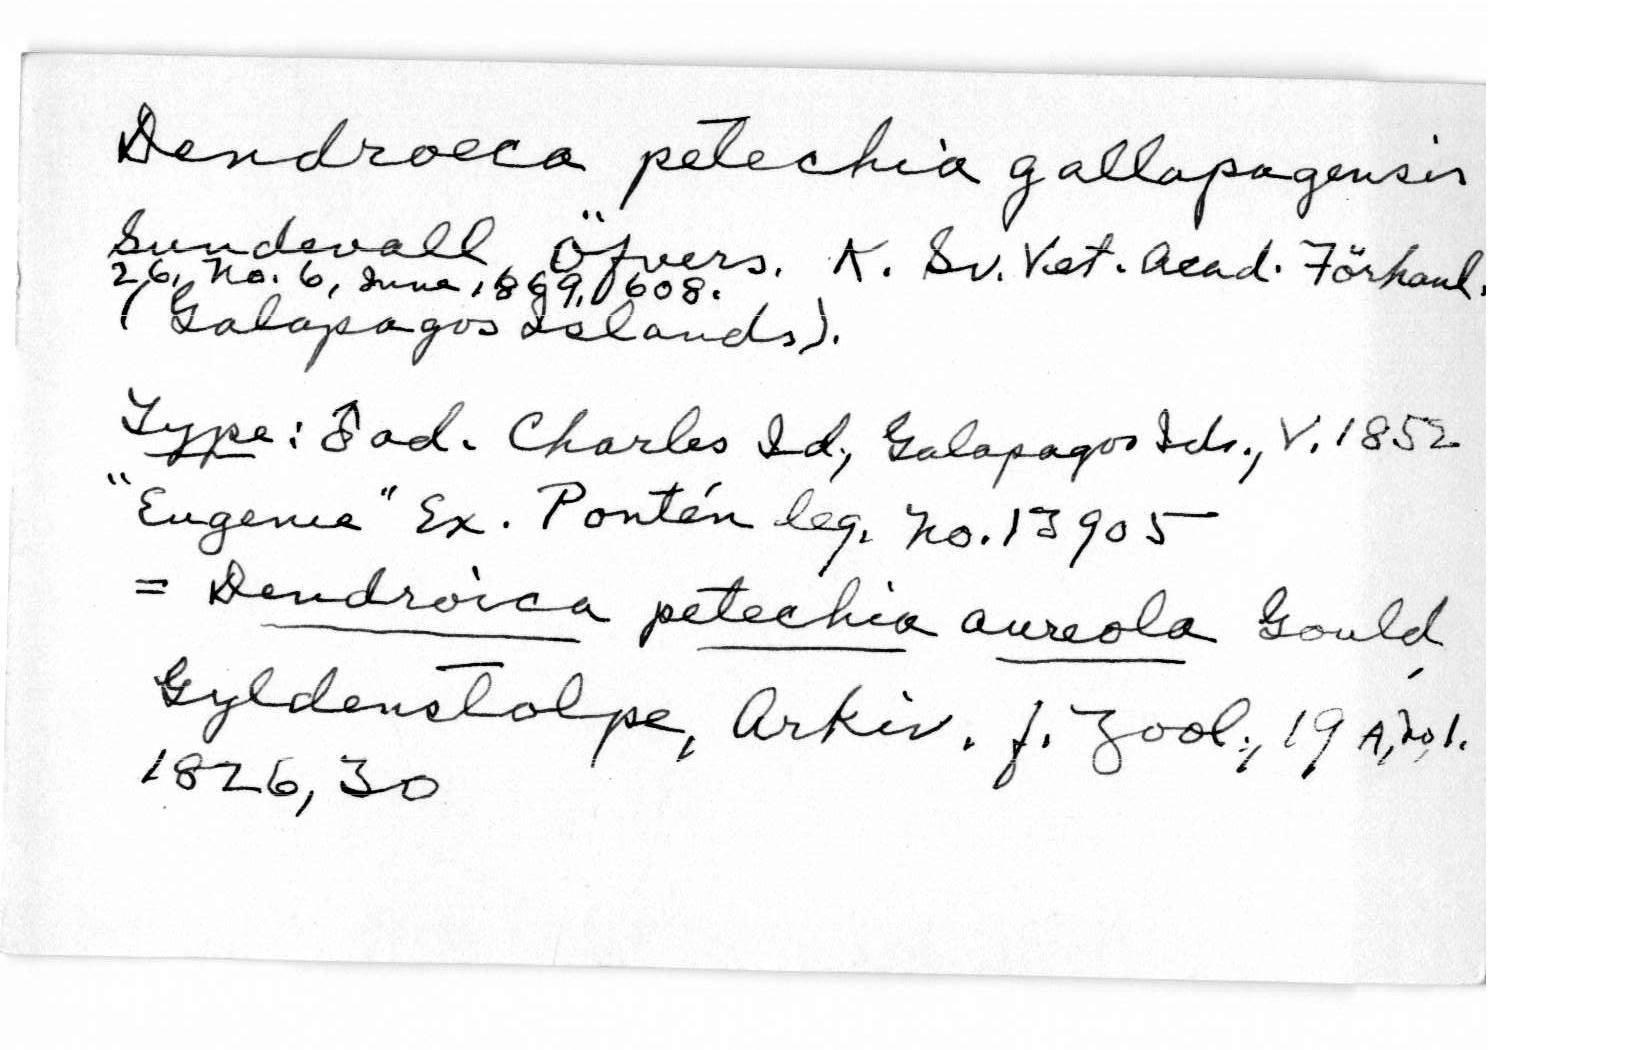 Dendroeca petechia gallapagensis
Sundevall, Öfvers. K. Sv. Vet. Acad. Förhandl.
26, No. 6, June, 1869, 608.
(Galapagos Islands).
Type: ♂ ad. Charles Id., Galapagos Ids., V. 1852
"Eugenie" Ex. Pontén leg. No. 13905
= Dendroica petechia aureola Gould
Gyldenstolpe, Arkiv. f. Zool., 19 A, No 1.
1826, 30